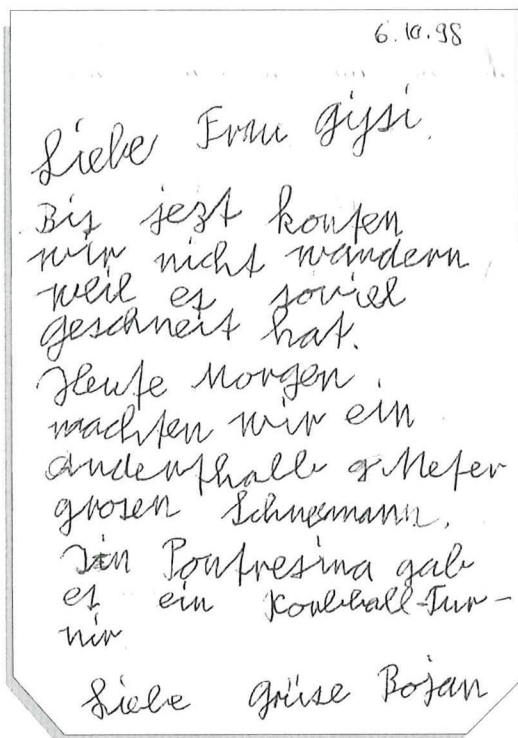 6.10.98
Liebe Frau Gysi.
Bis jezt konten
wir nicht wandern
weil es soviel
geschneit hat.
Heute Morgen
machten wir ein
anderthalb Meter
grosen Schneemann.
In Pontresina gab
es ein Korbball-Tur-
nir
Liebe Grüse Bojan